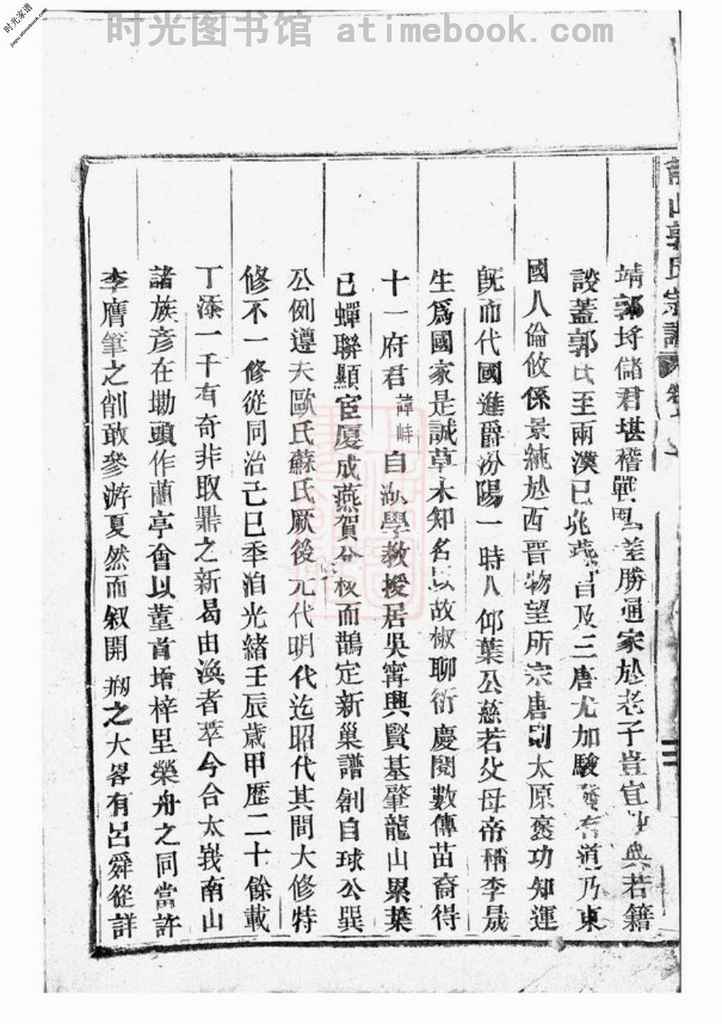 时光图书馆 atimebook.com
时光家谱
郭氏宗譜 卷
靖郭埒儲君堪稽戰差勝通家於老子豈宜典若籍
談蓋郭氏至兩漢已兆燕自及三唐尤加駿發有道乃東
國人倫攸係景純於西晉物望所宗唐則太原褒功知運
旣而代國進爵汾陽一時人仰葉公慈若父母帝稱李晟
生爲國家是誠草木知名以故椒聊衍慶閱數傳苗裔得
十一府君諱峙自學教授居吳甯興賢基肇龍山累葉
已蟬聯顯宦廈成燕賀而鵲定新巢譜創自球公巽
公例遵夫歐氏蘇氏厥後元代明代迄昭代其間大修特
修不一修從同治己巳季洎光緒壬辰歲甲歷二十餘載
丁添一千有奇非取鼎之新曷由渙者萃今合太峩南山
諸族彥在墈頭作蘭亭會以董首增梓里榮舟之同當許
李膺筆之削敢參游夏然而叙開之大畧有呂舜從詳